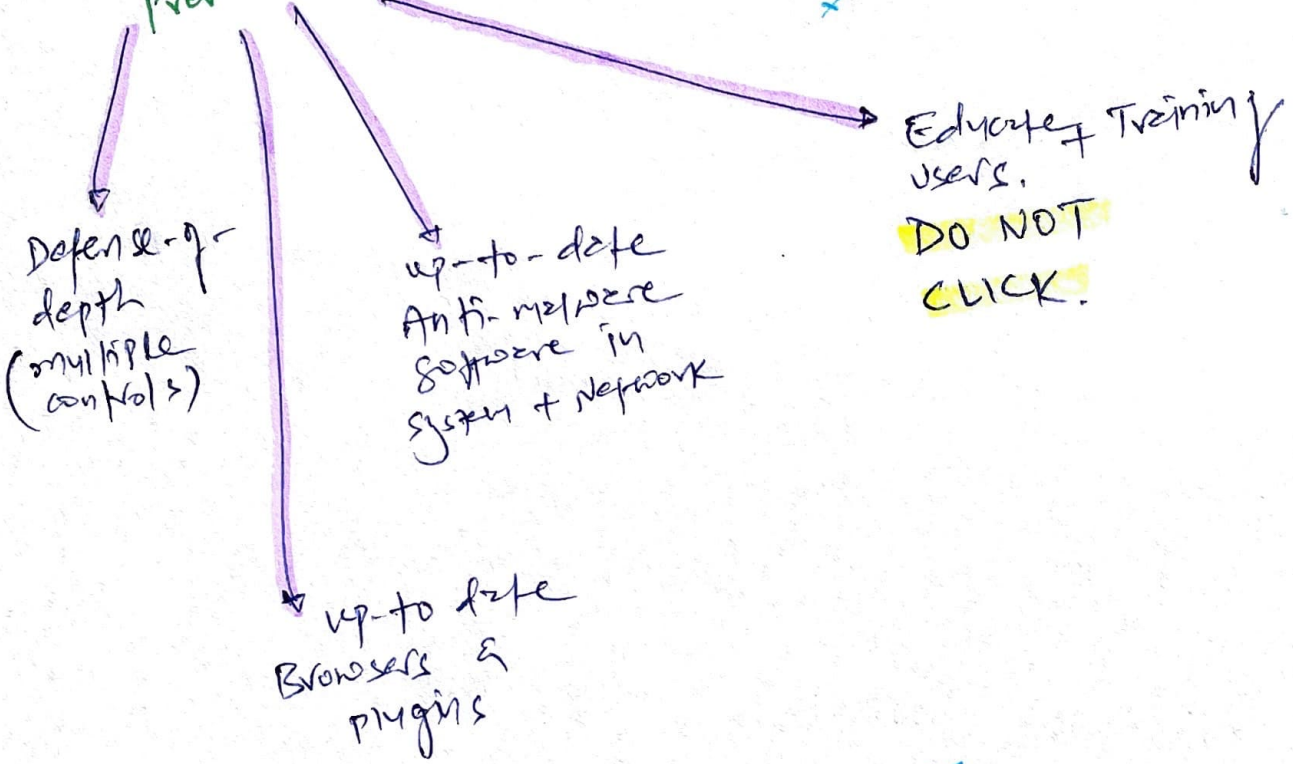 Defense-of-
depth
(multiple
controls)
up-to date
Browsers &
plugins
up-to-date
Anti-malware
software in
system + Network
Educate + Training
users.
DO NOT
CLICK.